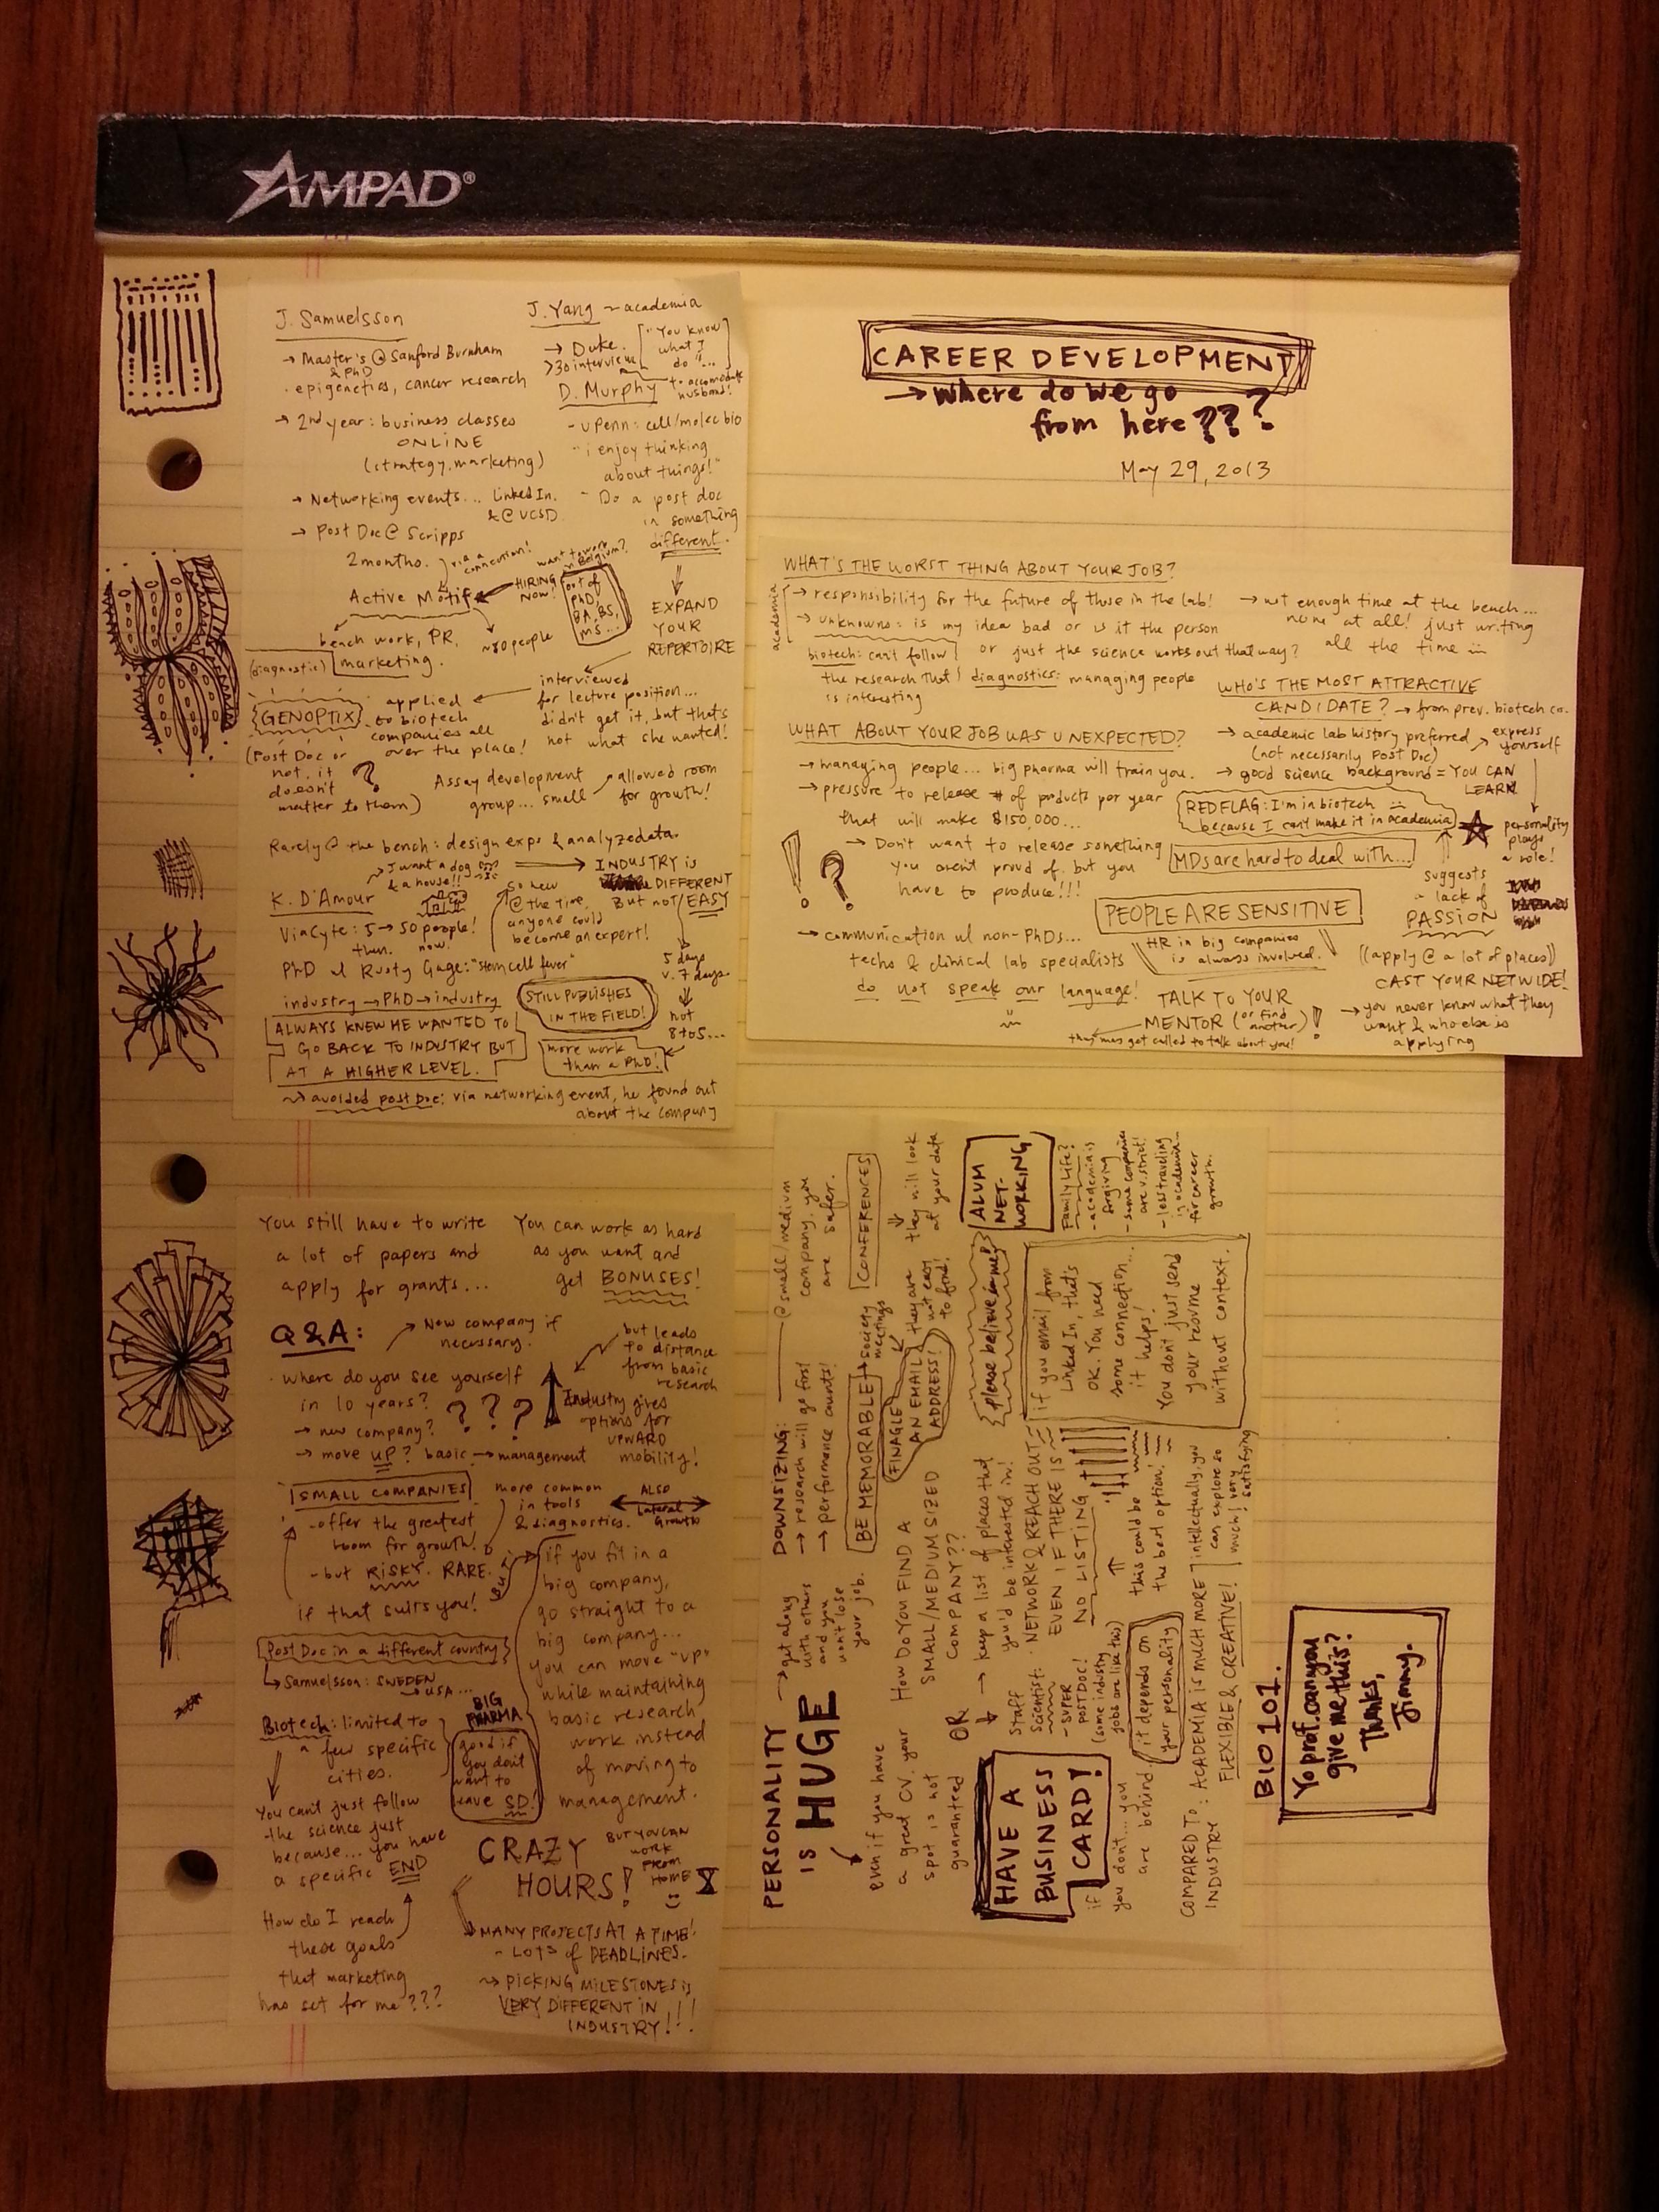 AMPAD®
CAREER DEVELOPMENT
→ where do we go
from here???
May 29, 2013
J. Samuelsson
→ Master's @ Sanford Burnham
& PhD
· epigenetics, cancer research
→ 2nd year: business classes
ONLINE
(strategy, marketing)
→ Networking events... LinkedIn.
& @ UCSD.
→ Post Doc @ Scripps
2 months.
via a
connection!
Active Motif
HIRING
NOW!
want to work
in Belgium?
out of
PhD,
BA, BS,
MS...
bench work, PR,
marketing.
~80 people
(diagnostic)
GENOPTIX
(Post Doc or
not, it
doesn't
matter to them)
?
J. Yang ~ academia
→ Duke.
>30 interview
"You know
what I
do"...
to accomodate
husband!
D. Murphy
- UPenn: cell/molec bio
"i enjoy thinking
about things!"
- Do a post doc
in something
different.
EXPAND
YOUR
REPERTOIRE
interviewed
for lecture position...
didn't get it, but that's
not what she wanted!
applied
to biotech
companies all
over the place!
Assay development
group... small
allowed room
for growth!
Rarely @ the bench: design exps & analyze data.
I want a dog
& a house!!
K. D'Amour
ViaCyte: 5 → 50 people!
then. now.
so new
@ the time,
anyone could
become an expert!
INDUSTRY is
DIFFERENT
But not EASY
PhD w/ Rusty Gage: "stem cell fever"
industry → PhD → industry
ALWAYS KNEW HE WANTED TO
GO BACK TO INDUSTRY BUT
AT A HIGHER LEVEL.
STILL PUBLISHES
IN THE FIELD!
5 days
v. 7 days.
not
8 to 5...
more work
than a PhD!
~> avoided post Doc: via networking event, he found out
about the company
WHAT'S THE WORST THING ABOUT YOUR JOB?
academia
→ responsibility for the future of those in the lab!
→ unknowns: is my idea bad or is it the person
or just the science works out that way?
→ not enough time at the bench...
none at all! just writing
all the time
biotech: can't follow
the research that
is interesting
diagnostics: managing people
WHAT ABOUT YOUR JOB WAS UNEXPECTED?
→ managing people... big pharma will train you.
→ pressure to release # of products per year
that will make $150,000...
!?
→ Don't want to release something
you aren't proud of, but you
have to produce!!!
→ communication w/ non-PhDs...
techs & clinical lab specialists
do not speak our language!
WHO'S THE MOST ATTRACTIVE
CANDIDATE? → from prev. biotech co.
→ academic lab history preferred
(not necessarily Post Doc)
→ good science background = YOU CAN
LEARN
express
yourself
personality
plays
a role!
RED FLAG: I'm in biotech
because I can't make it in academia
suggests
a lack of
PASSION
MDs are hard to deal with...
PEOPLE ARE SENSITIVE
HR in big companies
is always involved.
TALK TO YOUR
MENTOR (or find
another)!
((apply @ a lot of places))
CAST YOUR NET WIDE!
→ you never know what they
want & who else is
applying
You still have to write
a lot of papers and
apply for grants...
You can work as hard
as you want and
get BONUSES!
Q&A:
New company if
necessary.
· where do you see yourself
in 10 years?
→ new company?
→ move up? basic → management
???
but leads
to distance
from basic
research
Industry gives
options for
UPWARD
mobility!
SMALL COMPANIES
- offer the greatest
room for growth!
- but RISKY. RARE.
if that suits you!
more common
in tools
& diagnostics.
ALSO
Lateral
Growth
but
if you fit in a
big company,
go straight to a
big company...
you can move "up"
while maintaining
basic research
work instead
of moving to
management.
Post Doc in a different country
Samuelsson: SWEDEN
→ USA...
Biotech: limited to
a few specific
cities.
BIG
PHARMA
good if
you don't
want to
leave SD!
You can't just follow
the science just
because... you have
a specific END
How do I reach
these goals
that marketing
has set for me???
CRAZY
HOURS!
BUT YOU CAN
WORK
FROM
HOME
MANY PROJECTS AT A TIME!
- LOTS of DEADLINES.
~> PICKING MILESTONES is
VERY DIFFERENT IN
INDUSTRY!!!
PERSONALITY
is HUGE
→ get along
with others
and you
won't lose
your job.
even if you have
a great CV, your
spot is not
guaranteed
DOWNSIZING:
→ research will go first
→ performance counts!
@ small/medium
company, you
are safer.
BE MEMORABLE
society
meetings
CONFERENCES
HOW DO YOU FIND A
SMALL/MEDIUM SIZED
COMPANY??
FINAGLE
AN EMAIL
ADDRESS!
they are
not easy
to find!
they will look
at your data
OR
→ keep a list of places that
you'd be interested in!
please believe in me!
ALUM
NET-
WORKING
HAVE A
BUSINESS
CARD!
if
you don't... you
are behind.
Staff
Scientist:
- SUPER
POSTDOC!
(some industry
jobs are like this)
it depends on
your personality
· NETWORK & REACH OUT
EVEN IF THERE IS
NO LISTING
this could be
the best option!
if you email from
Linked In, that's
OK. You need
some connection...
it helps!
You don't just send
your resume
without context.
Family Life?
- academia is
forgiving
- some companies
are v. strict!
- less traveling
in academia...
for career
growth.
COMPARED TO
INDUSTRY
: ACADEMIA IS MUCH MORE
FLEXIBLE & CREATIVE!
intellectually, you
can explore so
much! very
satisfying
BIO 101.
Yo prof. can you
give me this?
Thanks,
Jimmy.